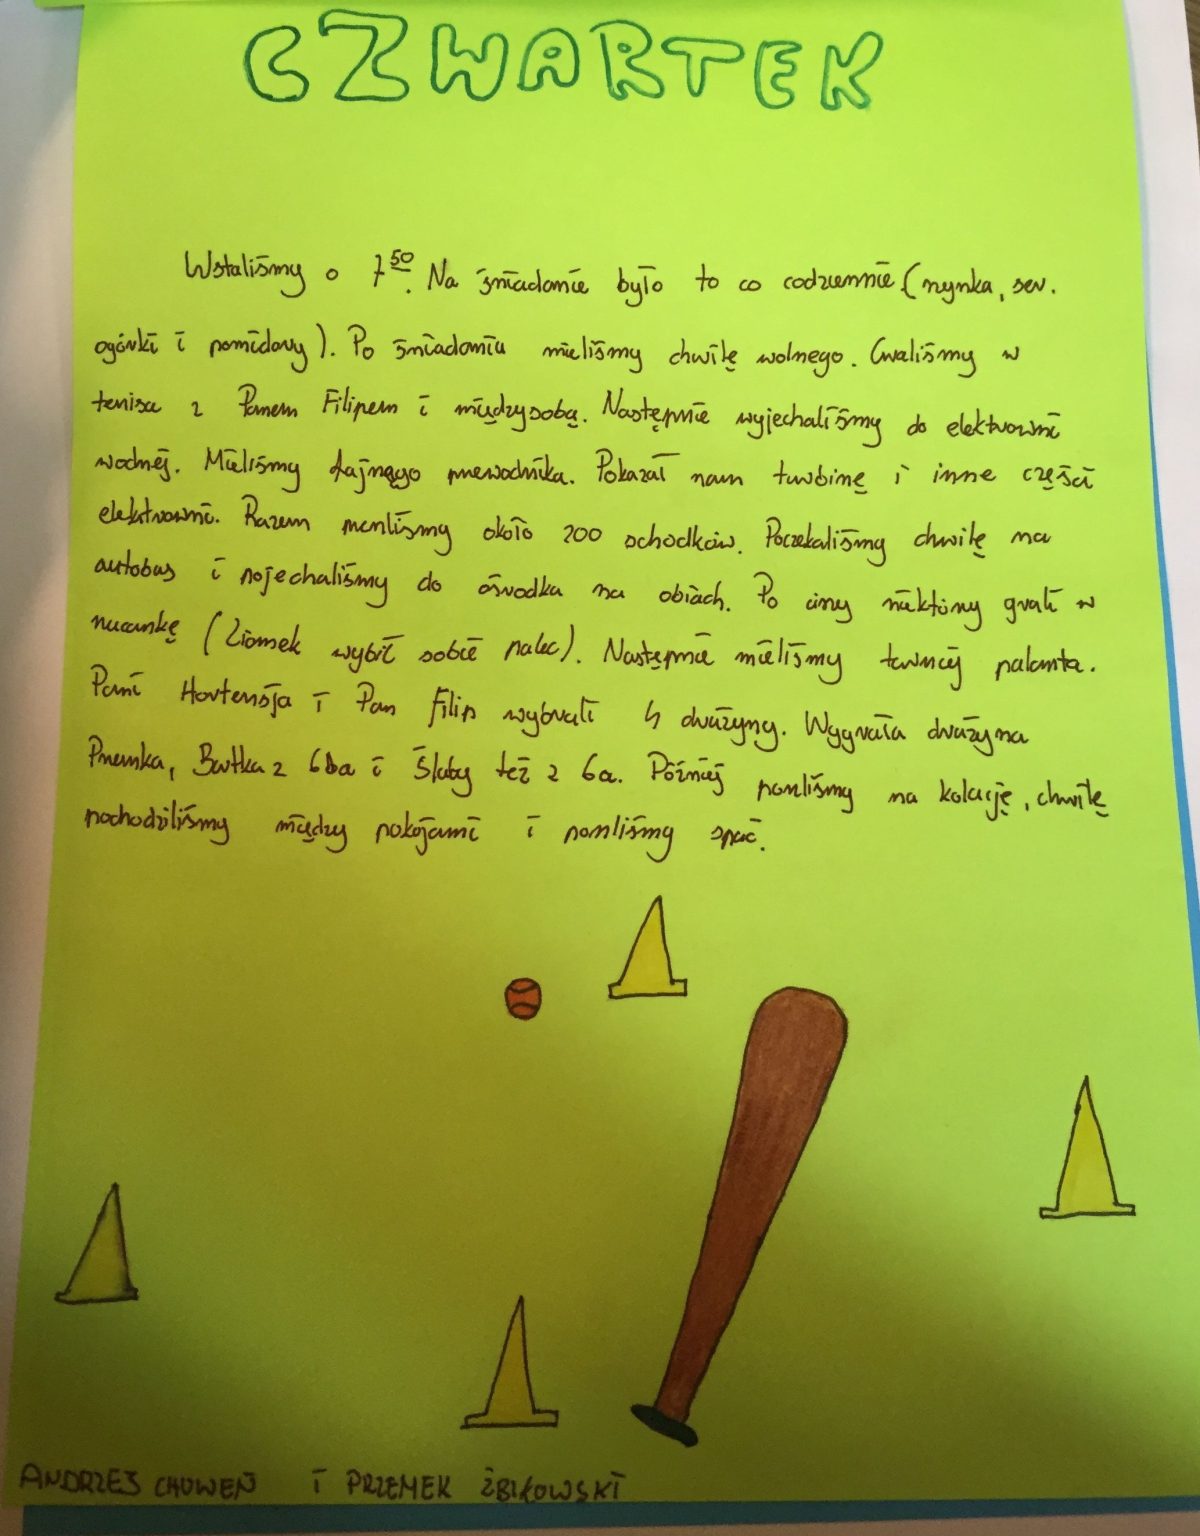 CZWARTEK
Wstaliśmy o 7⁵⁰. Na śniadanie było to co codziennie (szynka, ser.
ogórki i pomidory). Po śniadaniu mieliśmy chwilę wolnego. Graliśmy w
tenisa z Panem Filipem i międzysobą. Następnie wyjechaliśmy do elektrowni
wodnej. Mieliśmy fajnego przewodnika. Pokazał nam turbinę i inne części
elektrowni. Razem przeszliśmy około 200 schodków. Poczekaliśmy chwilę na
autobus i pojechaliśmy do ośrodka na obiach. Po ciszy niektórzy grali w
rucankę (Ziomek wybił sobie palec). Następnie mieliśmy turniej palanta.
Pani Hortensja i Pan Filip wybrali 4 drużyny. Wygrała drużyna
Przemka, Bartka z 6ba i Śluby też z 6a. Później poszliśmy na kolację, chwilę
pochodziliśmy między pokojami i poszliśmy spać.
ANDRZEJ I PRZEMEK ŻBIKOWSKI